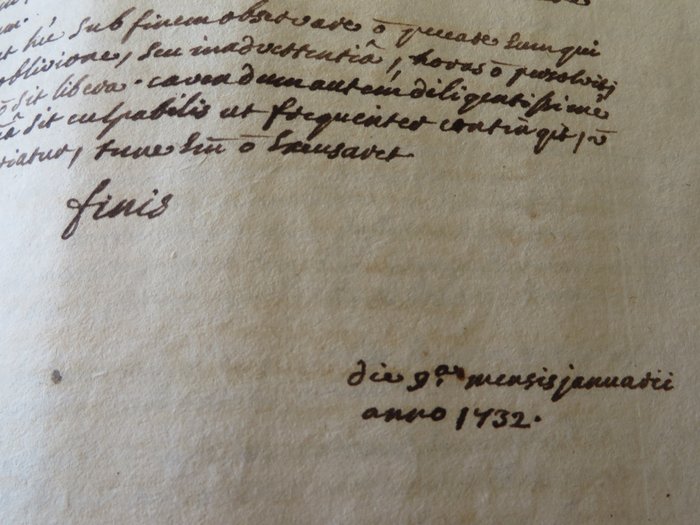 hîc sub finem observare õ peccare eum qui
oblivione, seu inadvertentiâ, horas õ persolvit,
sit libera. cavendum autem diligentissimè
sit culpabilis ut frequenter contingit, õ
tunc eũ õ excusaret
finis
die 9ª mensis januarii
anno 1732.